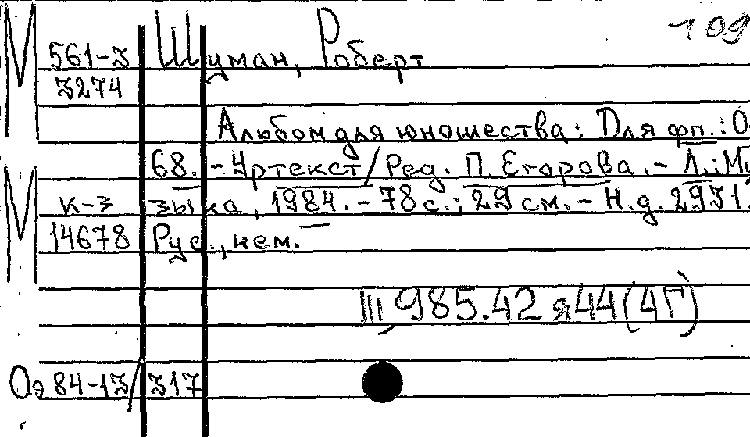 109
561-3 Шуман, Роберт
3274
Альбом для юношества: Для фп.: О
68. - Уртекст / Ред. П. Егорова. - Л.: Му
к-3 зыка, 1984. - 78 с.; 29 см. - Н.д. 2931.
14678 Рус., нем.
III, 985.42 я44(4Г)
Оэ 84-13/317